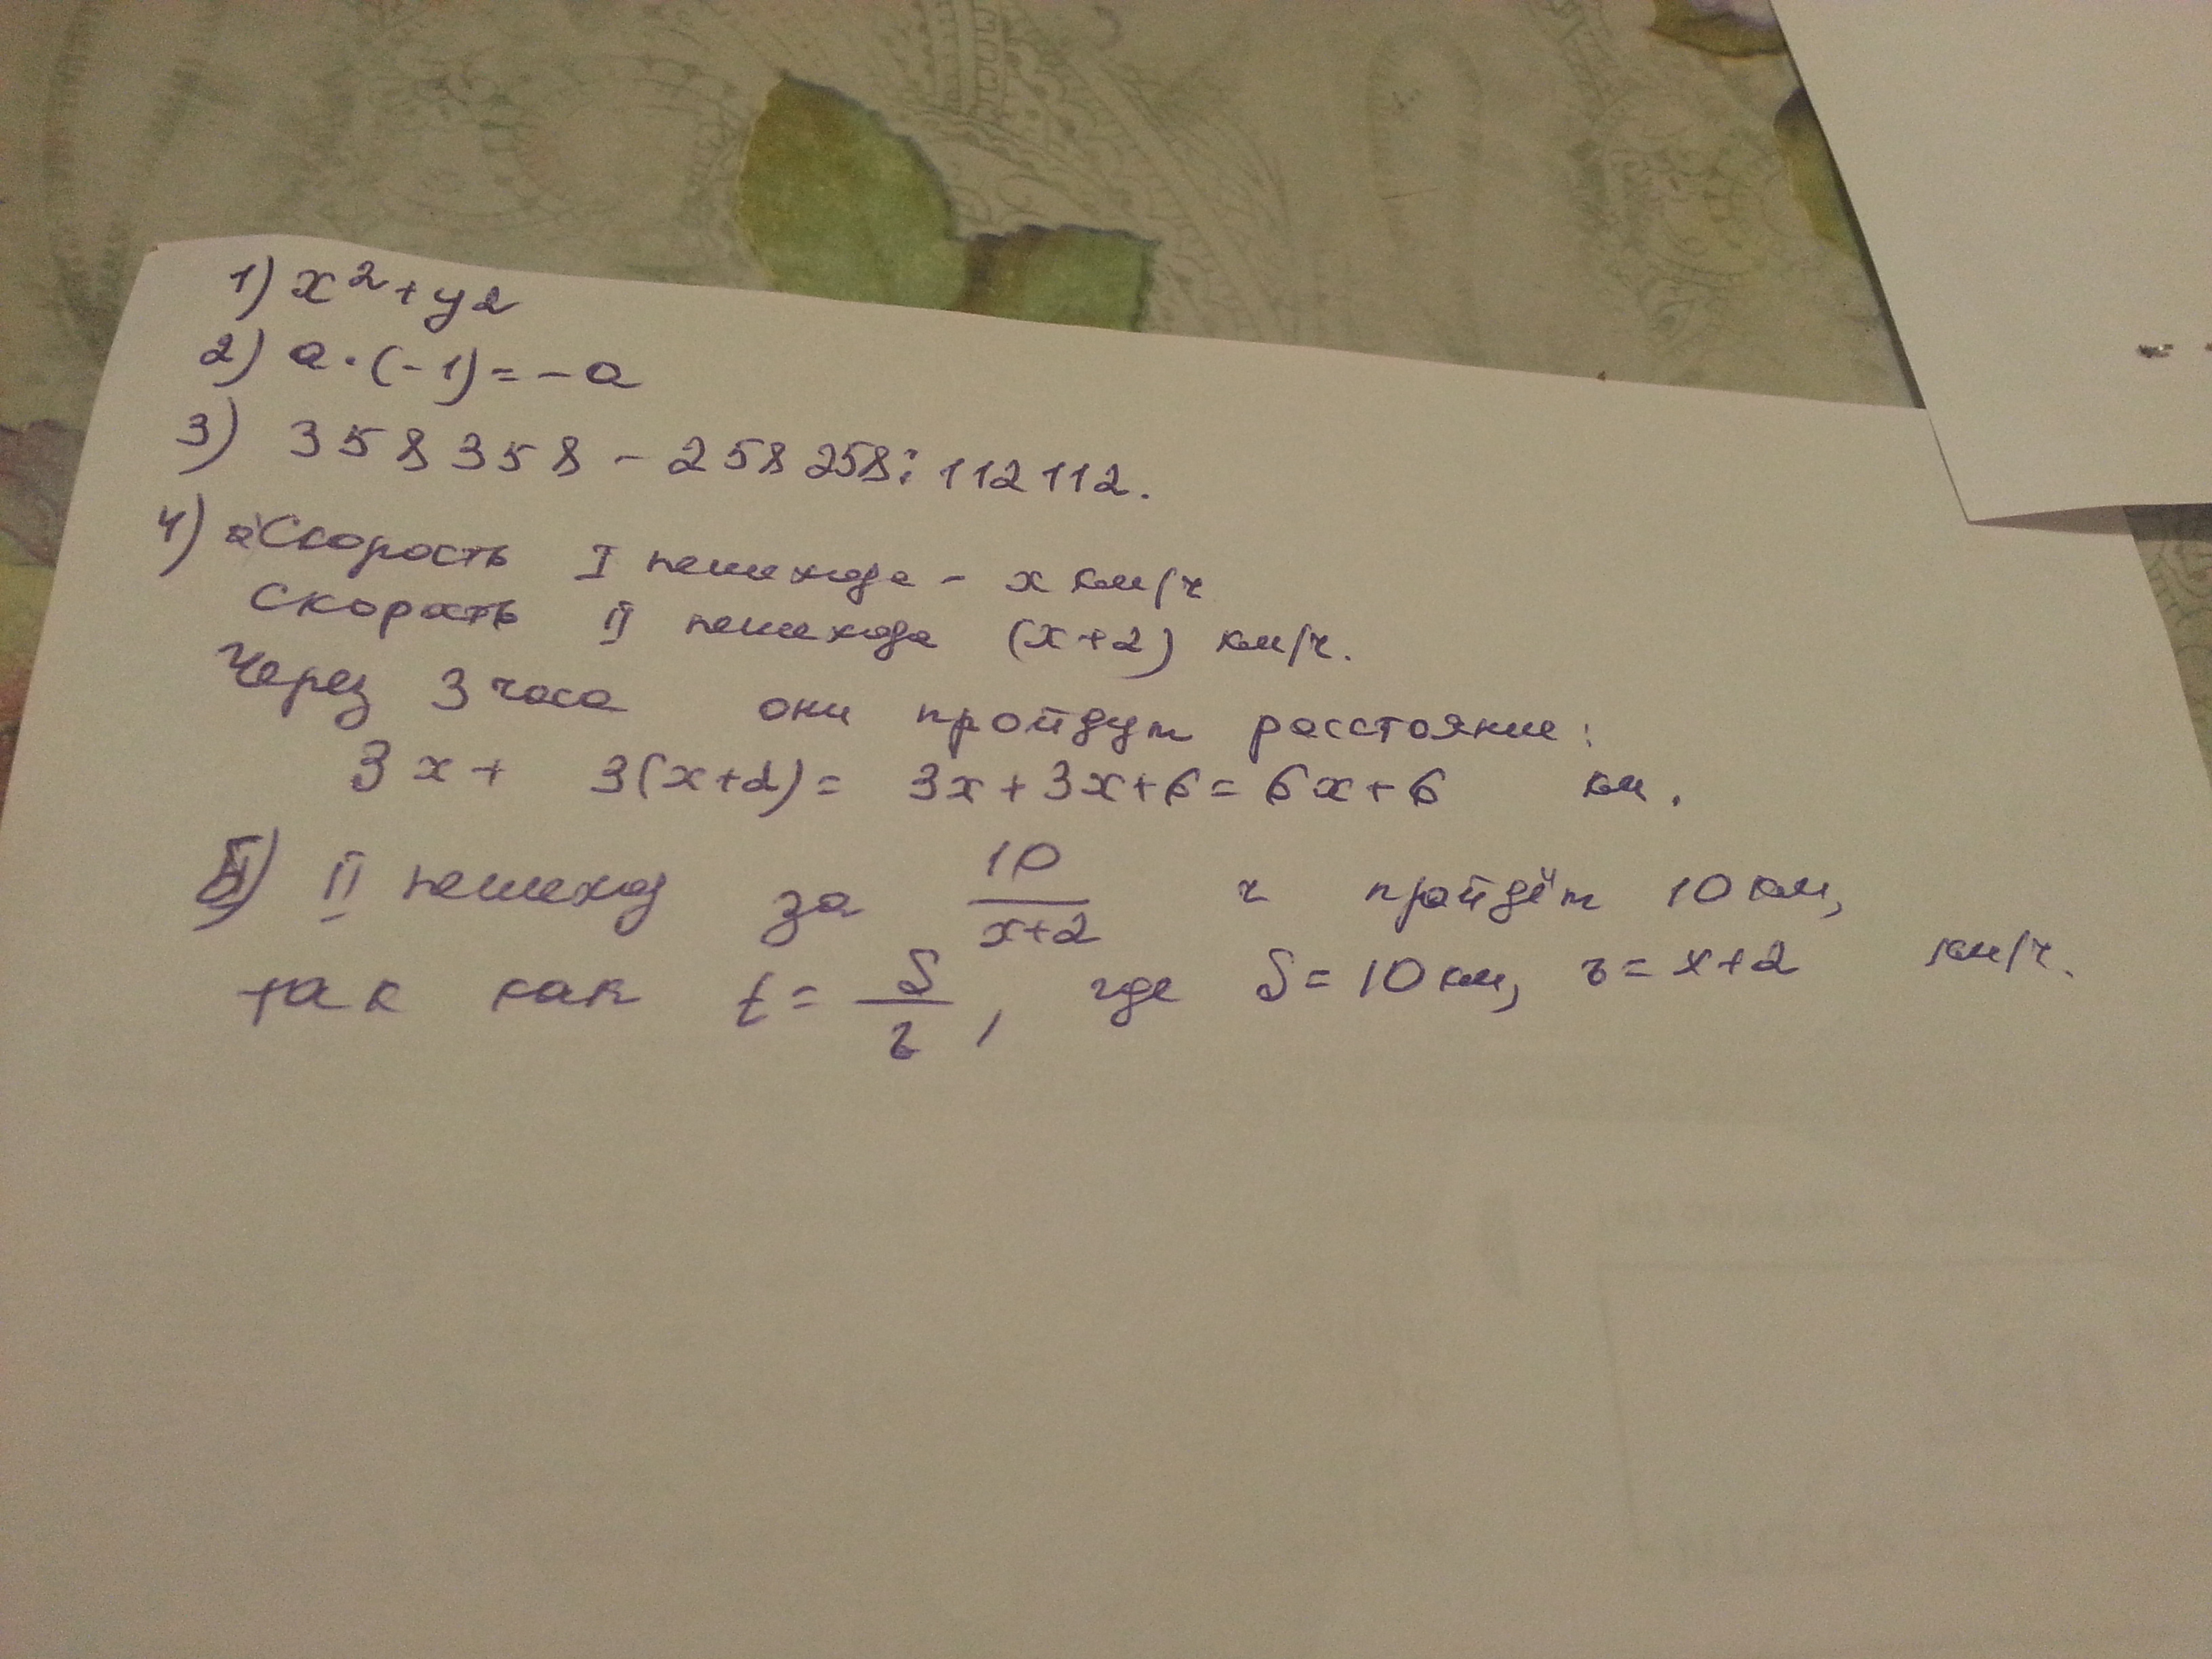 1) x² + y2
2) a · (-1) = -a
3) 358 358 - 258 258 : 112 112.
4) а) Скорость I пешехода - x км/ч
Скорость II пешехода (x+2) км/ч.
Через 3 часа они пройдут расстояние:
3x + 3(x+2) = 3x + 3x + 6 = 6x + 6 км.
б) II пешеход за 10/(x+2) ч пройдёт 10 км,
так как t = S/v, где S = 10 км, v = x+2 км/ч.